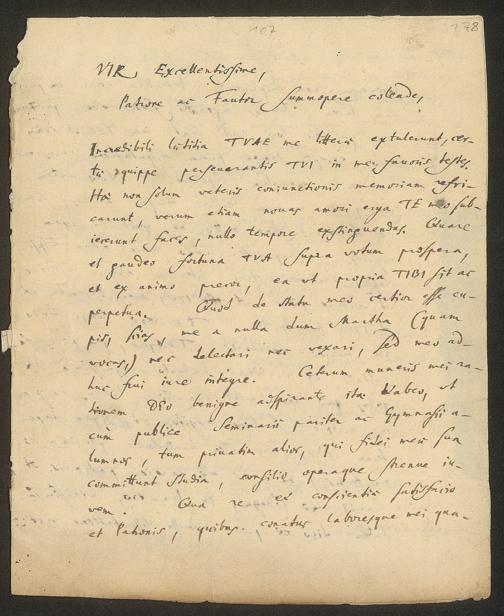 107
178
VIR Excellentissime,
Patrone ac Fautor summopere colende,
Incredibili lætitia TVAE me litteræ extulerunt, cer-
tæ quippe perseverantis TVI in me favoris testes.
Hæ non solum veteris coniunctionis memoriam refri-
carunt, verum etiam novas amori erga TE meo sub-
iecerunt faces, nullo tempore exstinguendas. Quare
et gaudeo fortuna TVA supra votum prospera,
et ex animo precor, ea ut propria TIBI sit ac
perpetua. Quod de statu meo certior esse cu-
pis, scias, me a nulla dum Martha (quam
vocas,) nec delectari nec vexari, sed meo ad-
huc frui iure integre. Ceterum muneris mei ra-
tionem DEo benigne adspirante ita habeo, ut
cum publice Seminarii pariter ac Gymnasii a-
lumnos, tum privatim alios, qui fidei meæ sua
committunt studia, consilio operaque strenue iu-
vem. Qua re et conscientiæ satisfacio
et Patronis, quibus conatus laboresque mei qua-